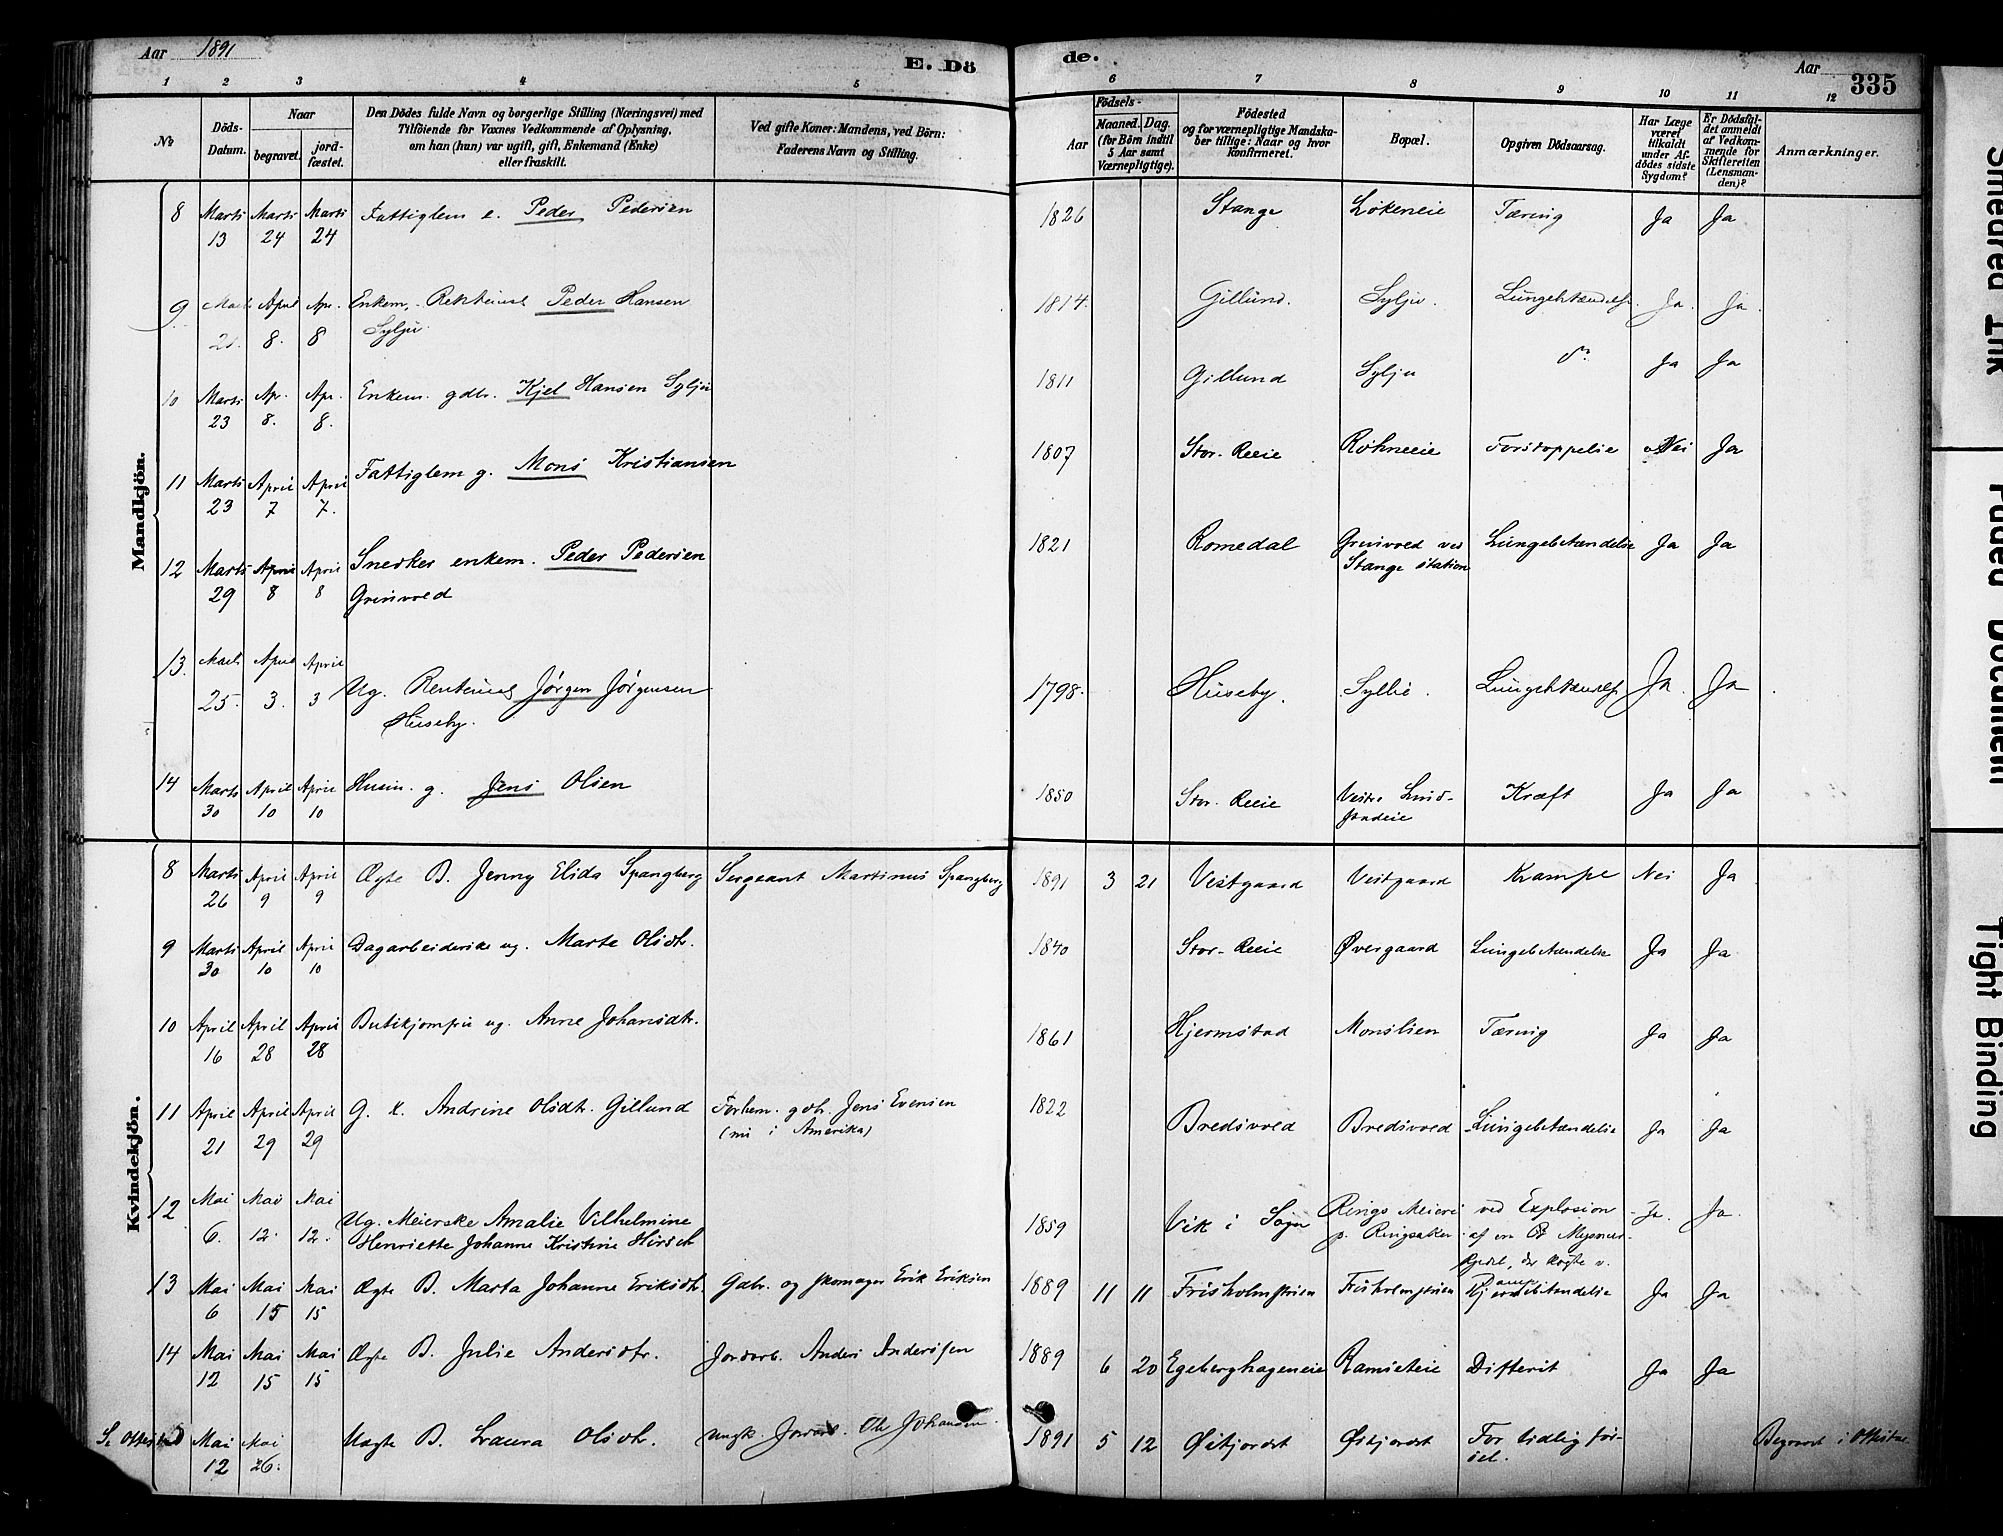 Aar 1891
E. Dö
de.
Aar
335
1 2 3 4 5 6 7 8 9 10 11 12
No
Döds-Datum.
Naar
begravet.
jord-fæstet.
Den Dödes fulde Navn og borgerlige Stilling (Næringsvei) med
Tilföiende for Voxnes Vedkommende af Oplysning,
om han (hun) var ugift, gift, Enkemand (Enke)
eller fraskilt.
Ved gifte Koner: Mandens, ved Börn:
Faderens Navn og Stilling.
Födsels-
Aar
Maaned. Dag.
(for Börn indtil
5 Aar samt
Værnepligtige).
Födested
og for værnepligtige Mandska-
ber tillige: Naar og hvor
Konfirmeret.
Bopæl.
Opgiven Dödsaarsag.
Har Læge
været
tilkaldt
under Af-
dödes sidste
Sygdom?
Er Dödsfal-
det anmeldt
af Vedkom-
mende for
Skifteretten
(Lensman-
den)?
Anmærkninger.
Mandkjön.
8 Marts 13 Marts 24 Marts 24 Fattiglem e. Peder Pedersen 1826 Stange Løkeneie Tæring Ja Ja
9 Marts April 8. Apr. 8 Enkem. Peder Hansen 1814. Gillund. Sylju. Lungebetændelse Ja. Ja.
Sylju.
10 Marts 23 Ap. 8. Apr. 8. Enkem. gdbr. Kjel Hansen Sylju 1811 Gillund Sylju do Ja Ja
11 Marts 23 April 7 April 7. Fattiglem g. Mons Kristiansen 1807 Stor-Reeie Røhneeie Forstoppelse Nei Ja
12 Marts 29 April 8 April 8 Snedker enkem. Peder Pedersen 1821 Romedal Grinvold ved Lungebetændelse Ja Ja
Grinvold Stange station
13. Marts 25. April 3. April 3 Ug. Jørgen Jørgensen 1798. Huseby. Syllie. Lungebetændelse Ja. Ja
Huseby.
14 Marts 30 April 10 April 10 Husm. g. Jens Olsen 1850 Stor-Reeie Vestre Lind- Kræft Ja Ja
Kvindekjön.
8 Marts 26 April 9 April 9 Ægte B. Jenny Elida Spangberg Sergeant Martinus Spangberg 1891 3 21 Vestgaard Vestgaard Krampe Nei Ja
9 Marts 30 April 10 April 10 Dagarbeiderske ug. Marte Olsdtr. 1840 Stor-Reeie Øvergaard Lungebetændelse Ja Ja
10 April 16 April 28 April 28 Butikjomfru ug. Anne Johansdtr. 1861 Hjermstad Monslien Tæring Ja Ja
11 April 21 April 29 April 29 G. k. Andrine Olsdtr. Gillund Forhen. gdbr. Jens Evensen 1822 Bredsvold Bredsvold Lungebetændelse Ja Ja
(nu i Amerika)
12 Mai 6. Mai 12. Mai 12. Ug. Meierske Amalie Vilhelmine 1859 Vik i Sogn Rings Meieri ved Explosion Ja. Ja.
Henriette Johanne Kristine Hirsch p. Ringsaker af en
13 Mai 6 Mai 15 Mai 15 Ægte B. Marta Johanne Eriksdtr. Gdbr. og skomager Erik Eriksen 1889 11 11 Frisholmstuen Frisholmstuen Hjernebetændelse Ja Ja
14 Mai 12 Mai 15 Mai 15 Ægte B. Julie Andersdtr. Jordarb. Anders Andersen 1889 6 20 Egeberghageneie Ramseteie Difterit Ja Ja
Mai 12 Mai 26. Uægte B. Laura Olsdtr. Ungk. Jordarb. Ole Johansen. 1891 5 12 Østjordet Østjordet For tidlig fød- Begravet i Ottestad
sel.
Smeared Ink
Faded Document
Tight Binding